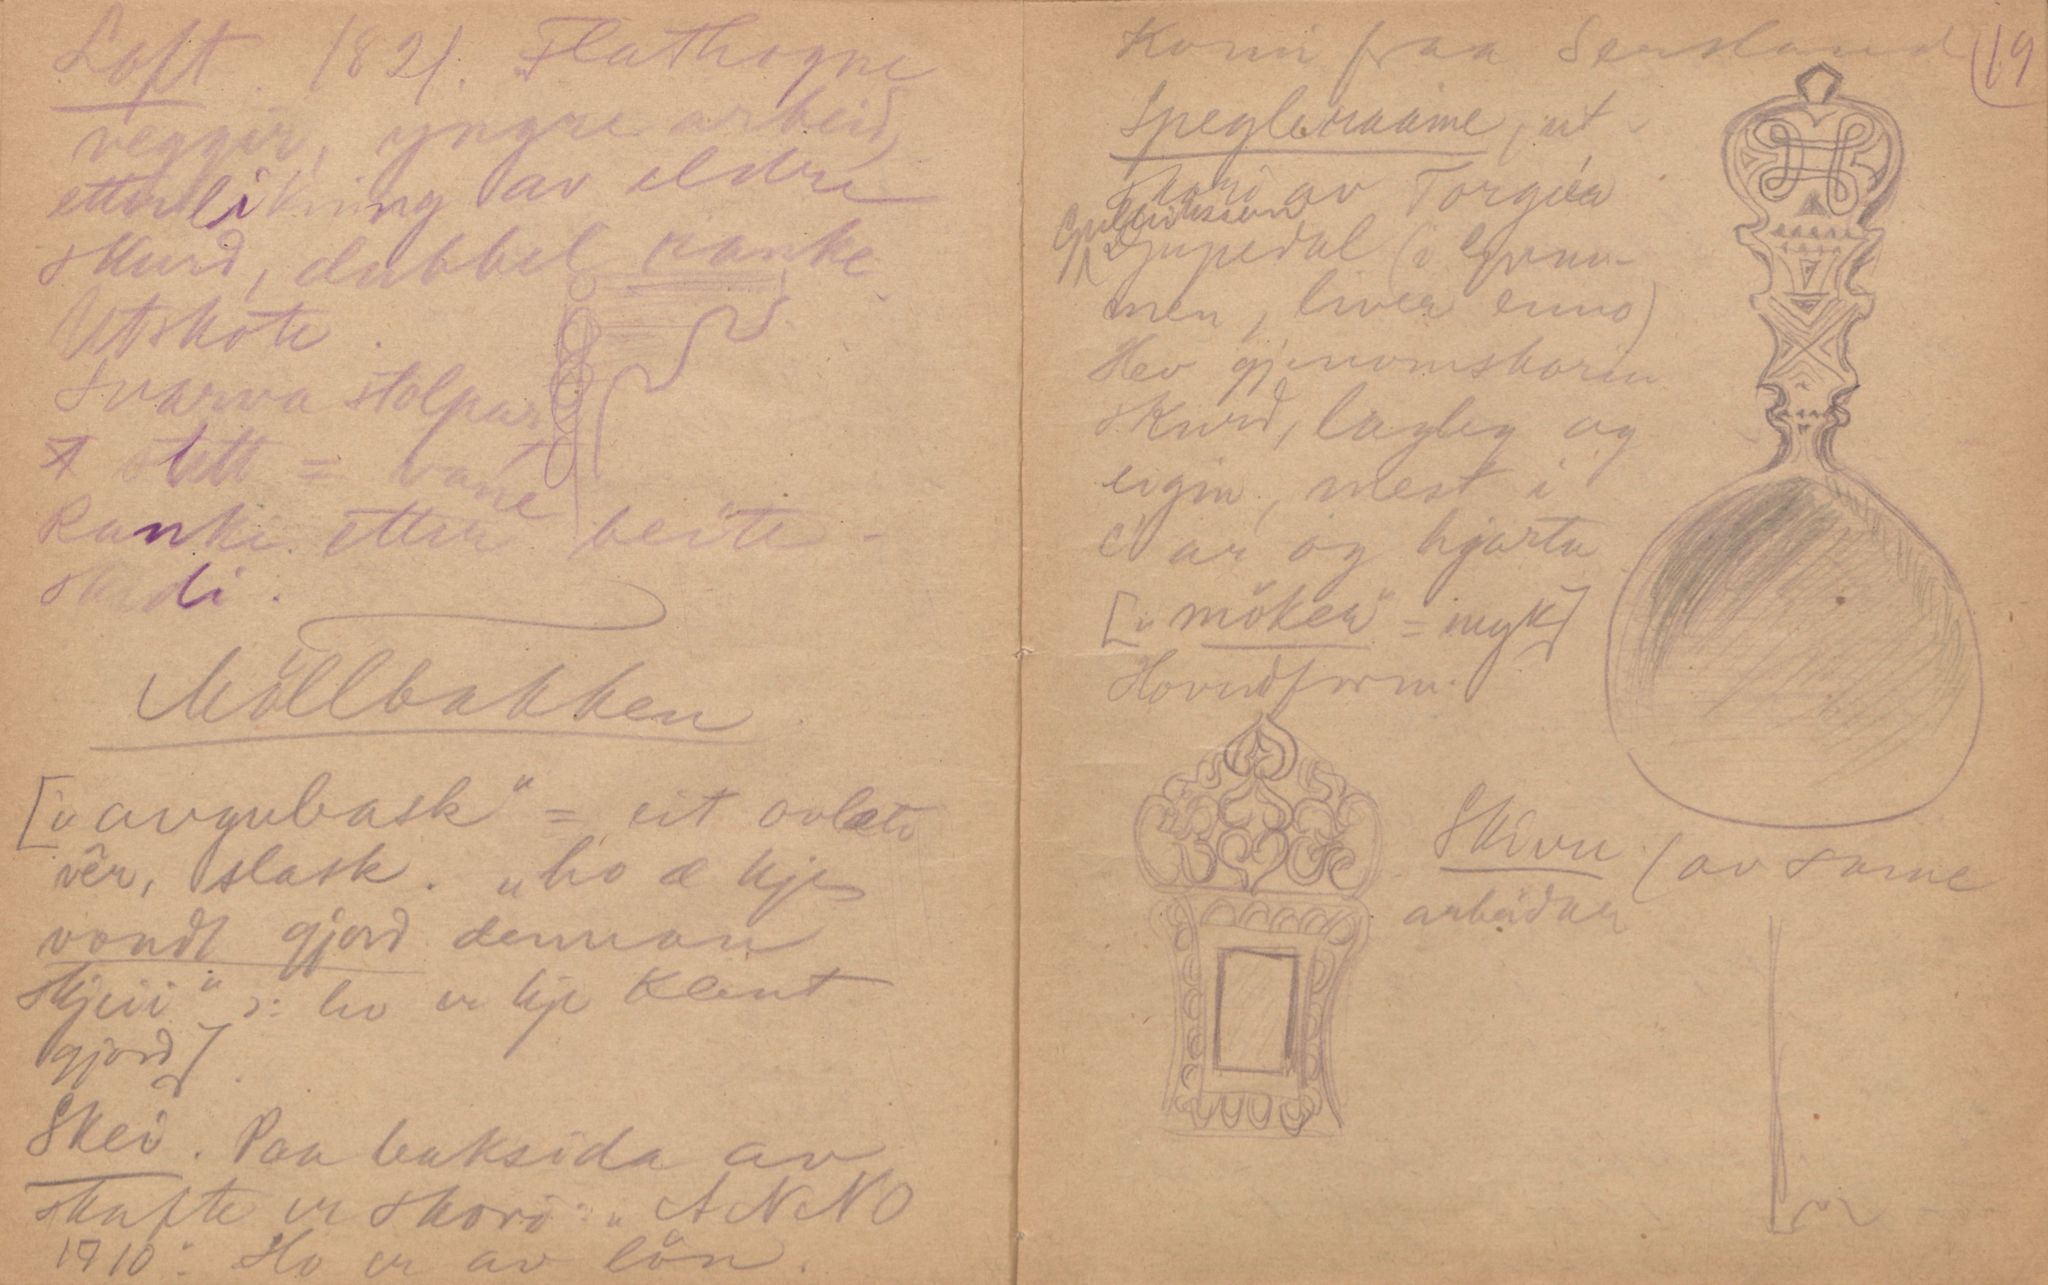 Loft. 1821. Flathogne
veggir, yngre arbeid,
etterlikning av eldre
skurd, dubbel ranke
Utskote.
Svarva stolpar
slett = vane
Ranke etter beite-
skidi.
Möllbakken
[„avgubask" = eit avlæte
vêr, slask. „ho æ kje
vondt gjord dennan
skjeii" ɔ: ho er kje klent
gjord].
Skei. Paa baksida av
skafte er skori: „ANNO
1710". Ho er av lön.
19
Komi fraa Sersland
Spegleraame, ut-
skori av Torgeir
Gunleiksson
Djupedal (i Grun-
men, liver enno)
Hev gjenomskorin
skurd, lagleg og
eigin, mest i
c ar og hjarta
[„möken" = mykje]
Hovudform.
Skivu (av same
arbeidar